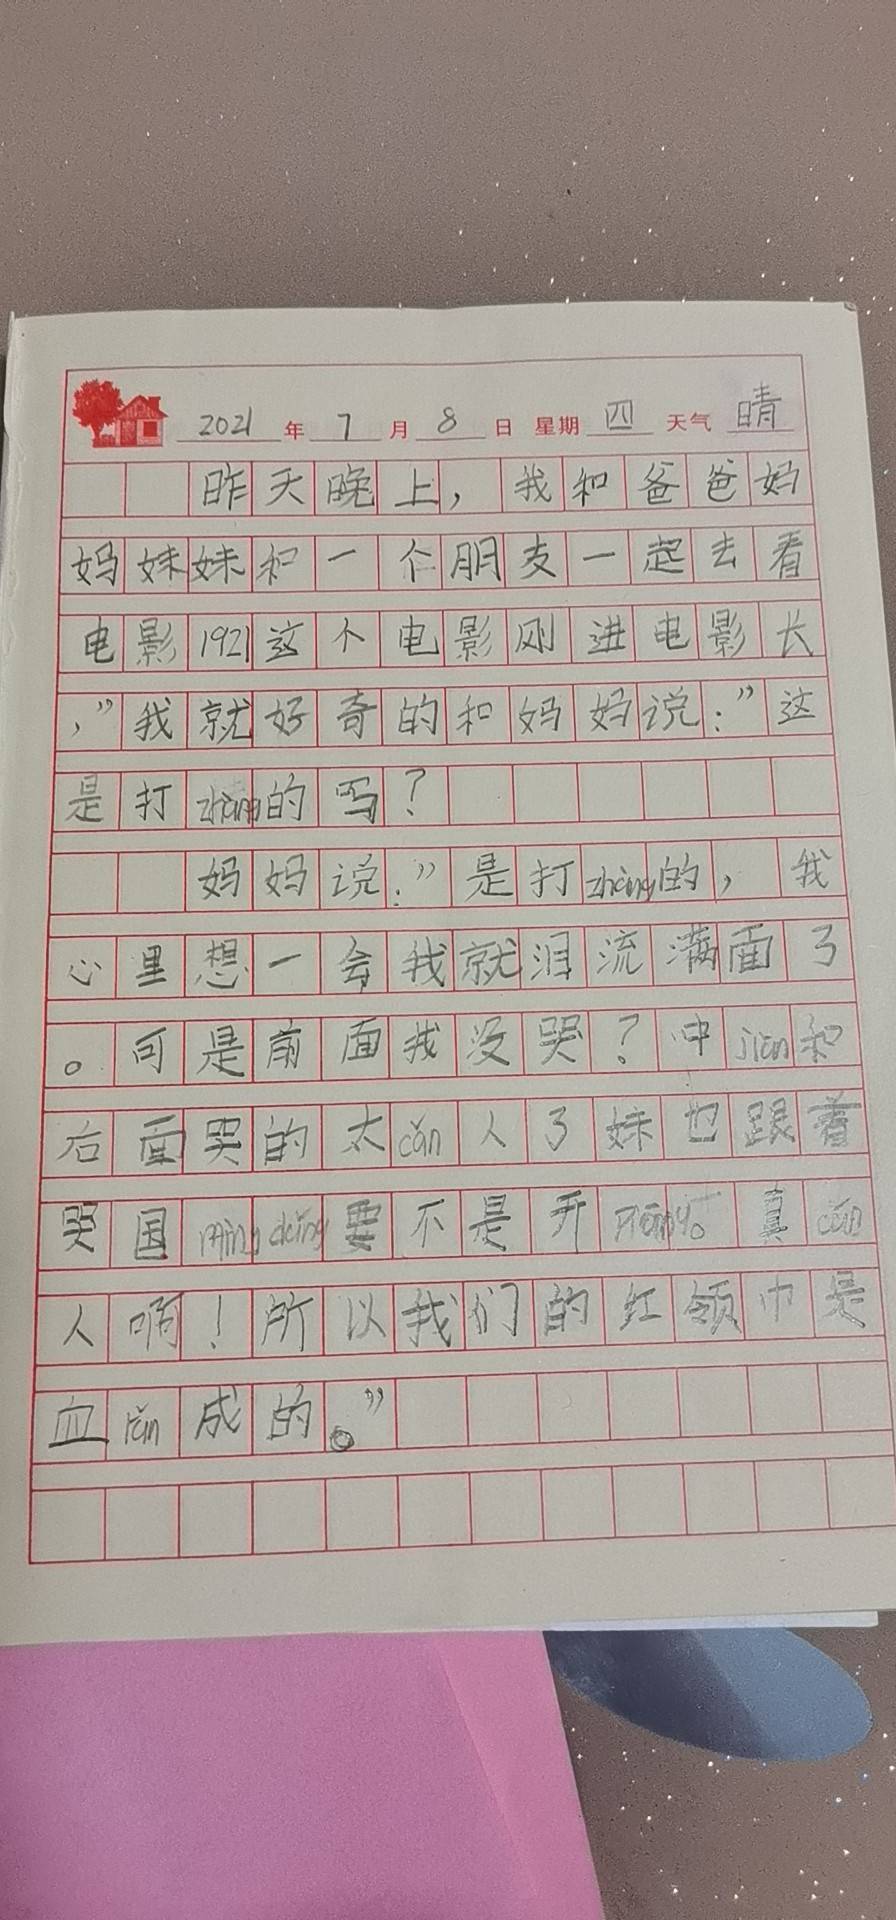 2021年7月8日 星期四 天气晴
昨天晚上，我和爸爸妈
妈妹妹和一个朋友一起去看
电影1921这个电影刚进电影长
，”我就好奇的和妈妈说：”这
是打zhàng的吗？
妈妈说：”是打zhàng的，我
心里想一会我就泪流满面了
。可是前面我没哭？冲jiān和
后面哭的太cǎn人了妹也跟着
哭国míng dǎng要不是开 。真cǎn
人啊！所以我们的红领巾是
血rǎn成的。”